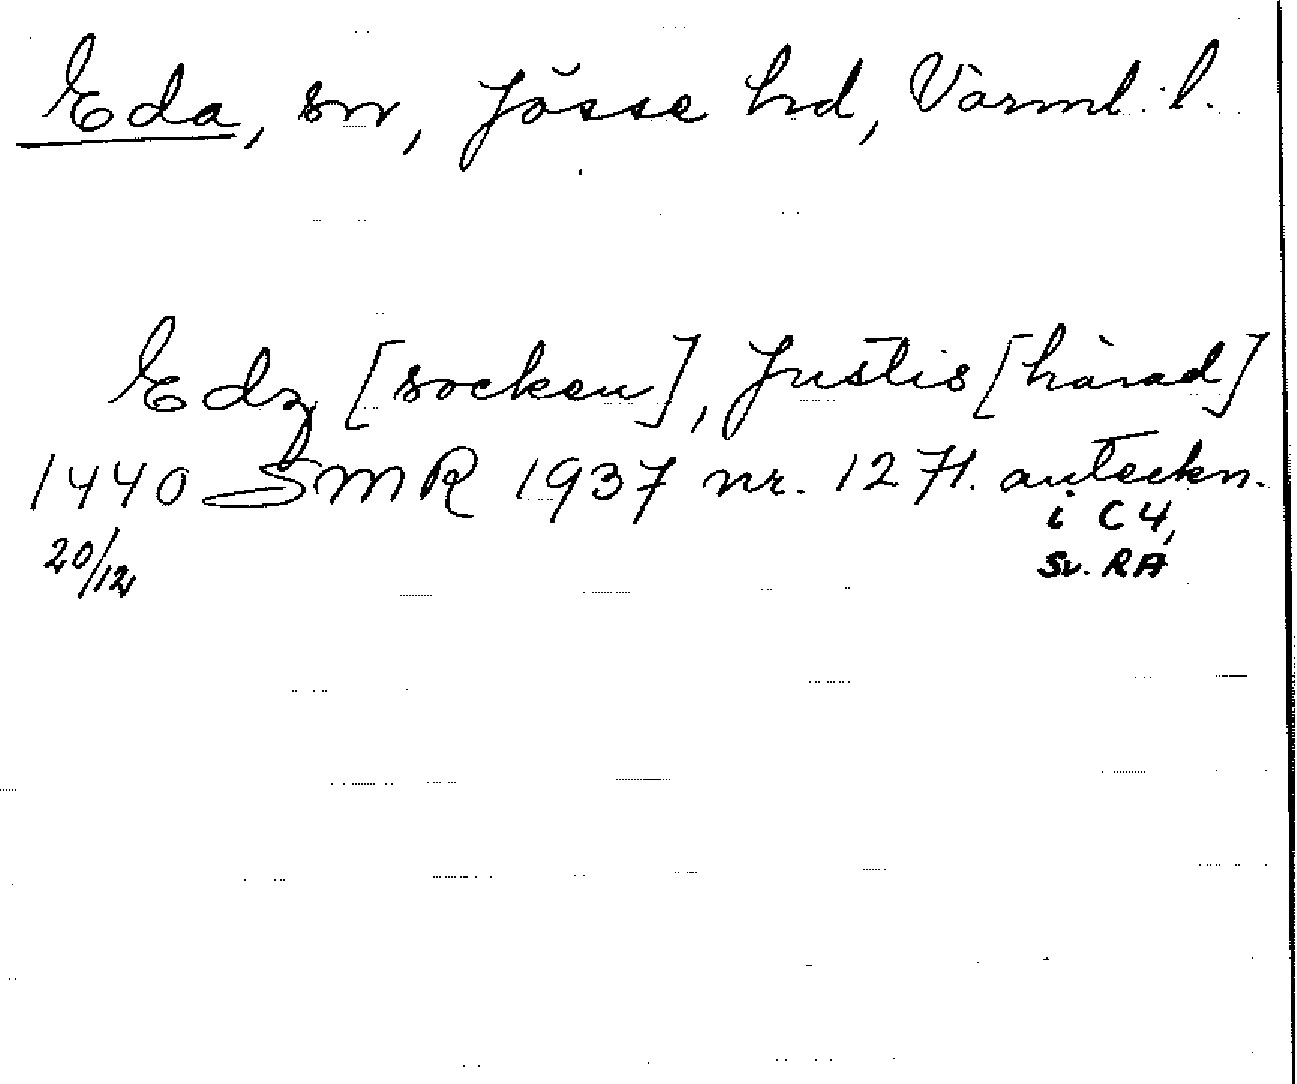 Eda, sn, Jösse hd, Värml. l.
Edz [socken], Justis [härad]
1440 SMR 1937 nr. 1271. anteckn.
20/12
i C4,
Sv. RA